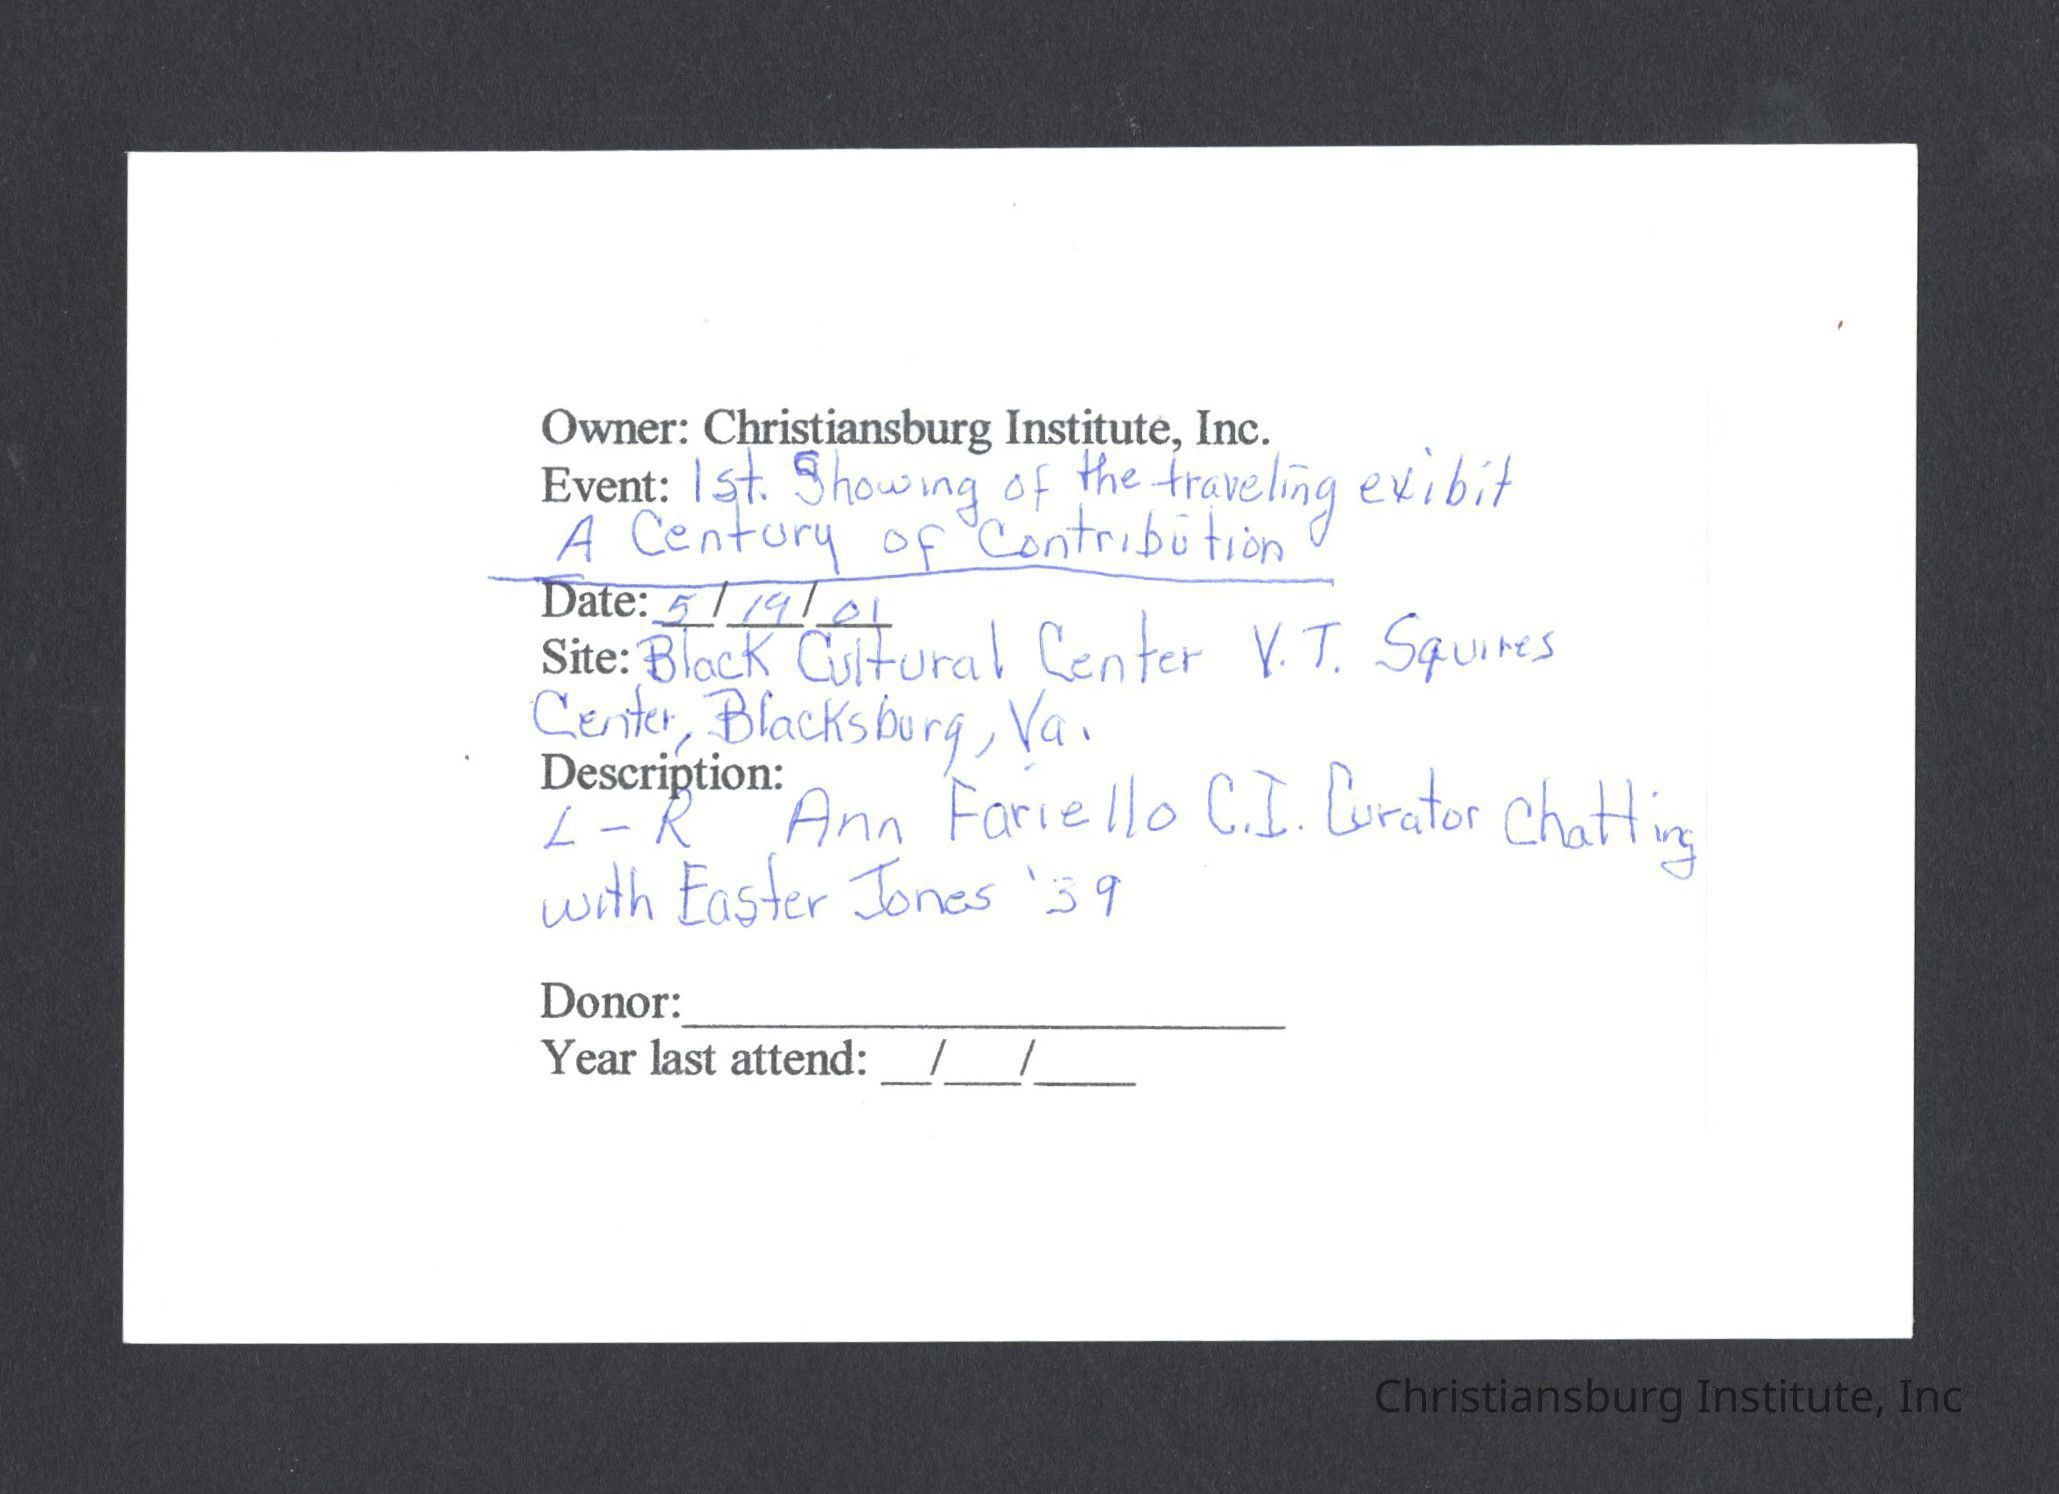 Owner: Christiansburg Institute, Inc.
Event: 1st. Showing of the traveling exibit
A Century of Contribution
Date: 5/19/01
Site: Black Cultural Center V.T. Squires
Center, Blacksburg, Va.
Description:
L-R Ann Fariello C.I. Curator Chatting
with Easter Jones '39
Donor:
Year last attend: __/___/____
Christiansburg Institute, Inc